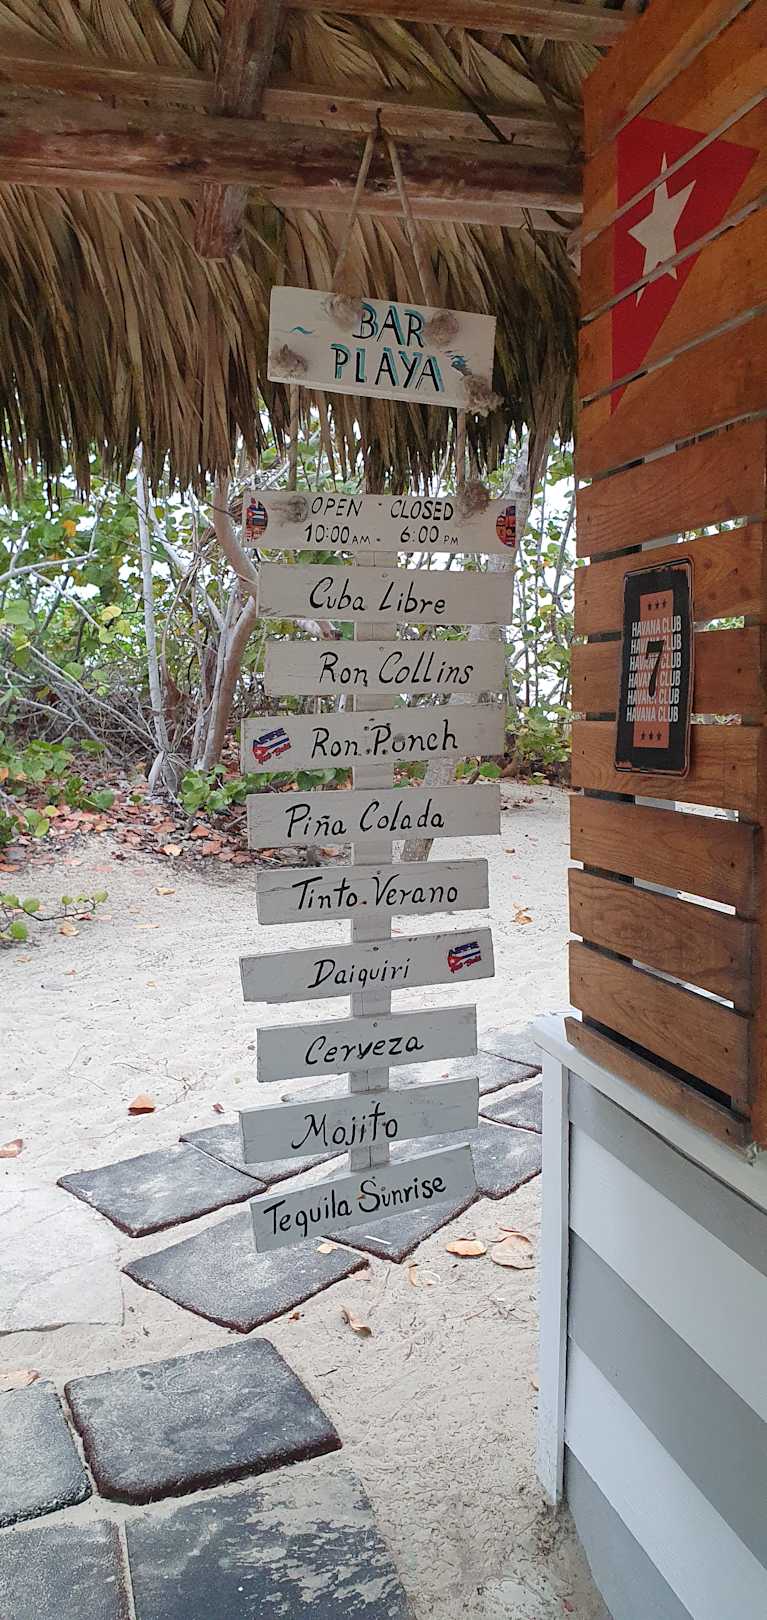 BAR
PLAYA
OPEN - CLOSED
10:00 AM - 6:00 PM
Cuba Libre
Ron Collins
Ron Ponch
Piña Colada
Tinto Verano
Daiquiri
Cerveza
Mojito
Tequila Sunrise
HAVANA CLUB
HAVANA CLUB
HAVANA CLUB
HAVANA CLUB
HAVANA CLUB
HAVANA CLUB
HAVANA CLUB
7